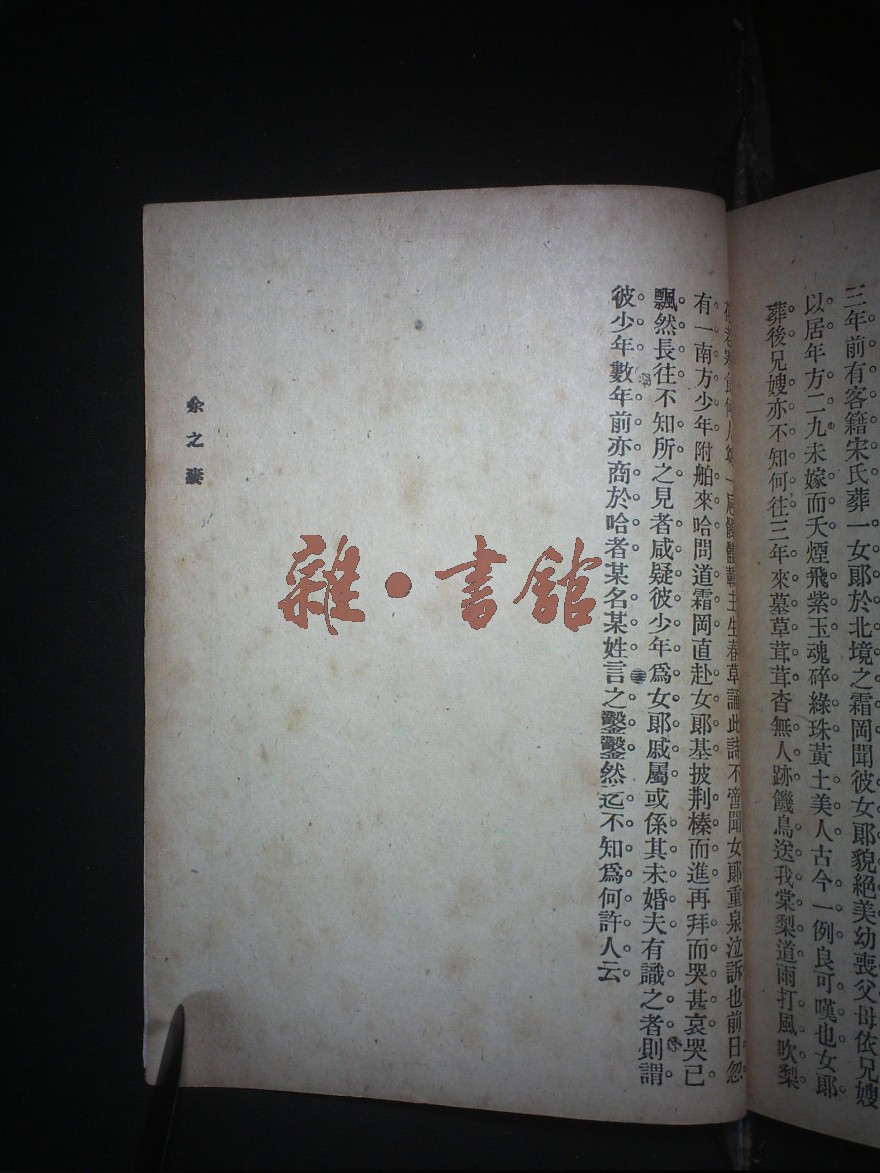 三年前有客籍宋氏葬一女郞於北境之霜岡聞彼女郞貌絕美幼喪父母依兄嫂
以居年方二九未嫁而夭煙飛紫玉魂碎綠珠黃土美人古今一例良可嘆也女郞
葬後兄嫂亦不知何往三年來墓草茸茸杳無人跡饑鳥送我棠梨道雨打風吹梨
主生春草誦此詩不啻聞女郞重泉泣訴也前日忽
有一南方少年附舶來哈問道霜岡直赴女郞基披荆榛而進再拜而哭甚哀哭已
飄然長往不知所之見者咸疑彼少年爲女郞戚屬或係其未婚夫有識之者則謂
彼少年數年前亦商於哈者某名某姓言之鑿鑿然迄不知爲何許人云
余之妻
三
雜·書館